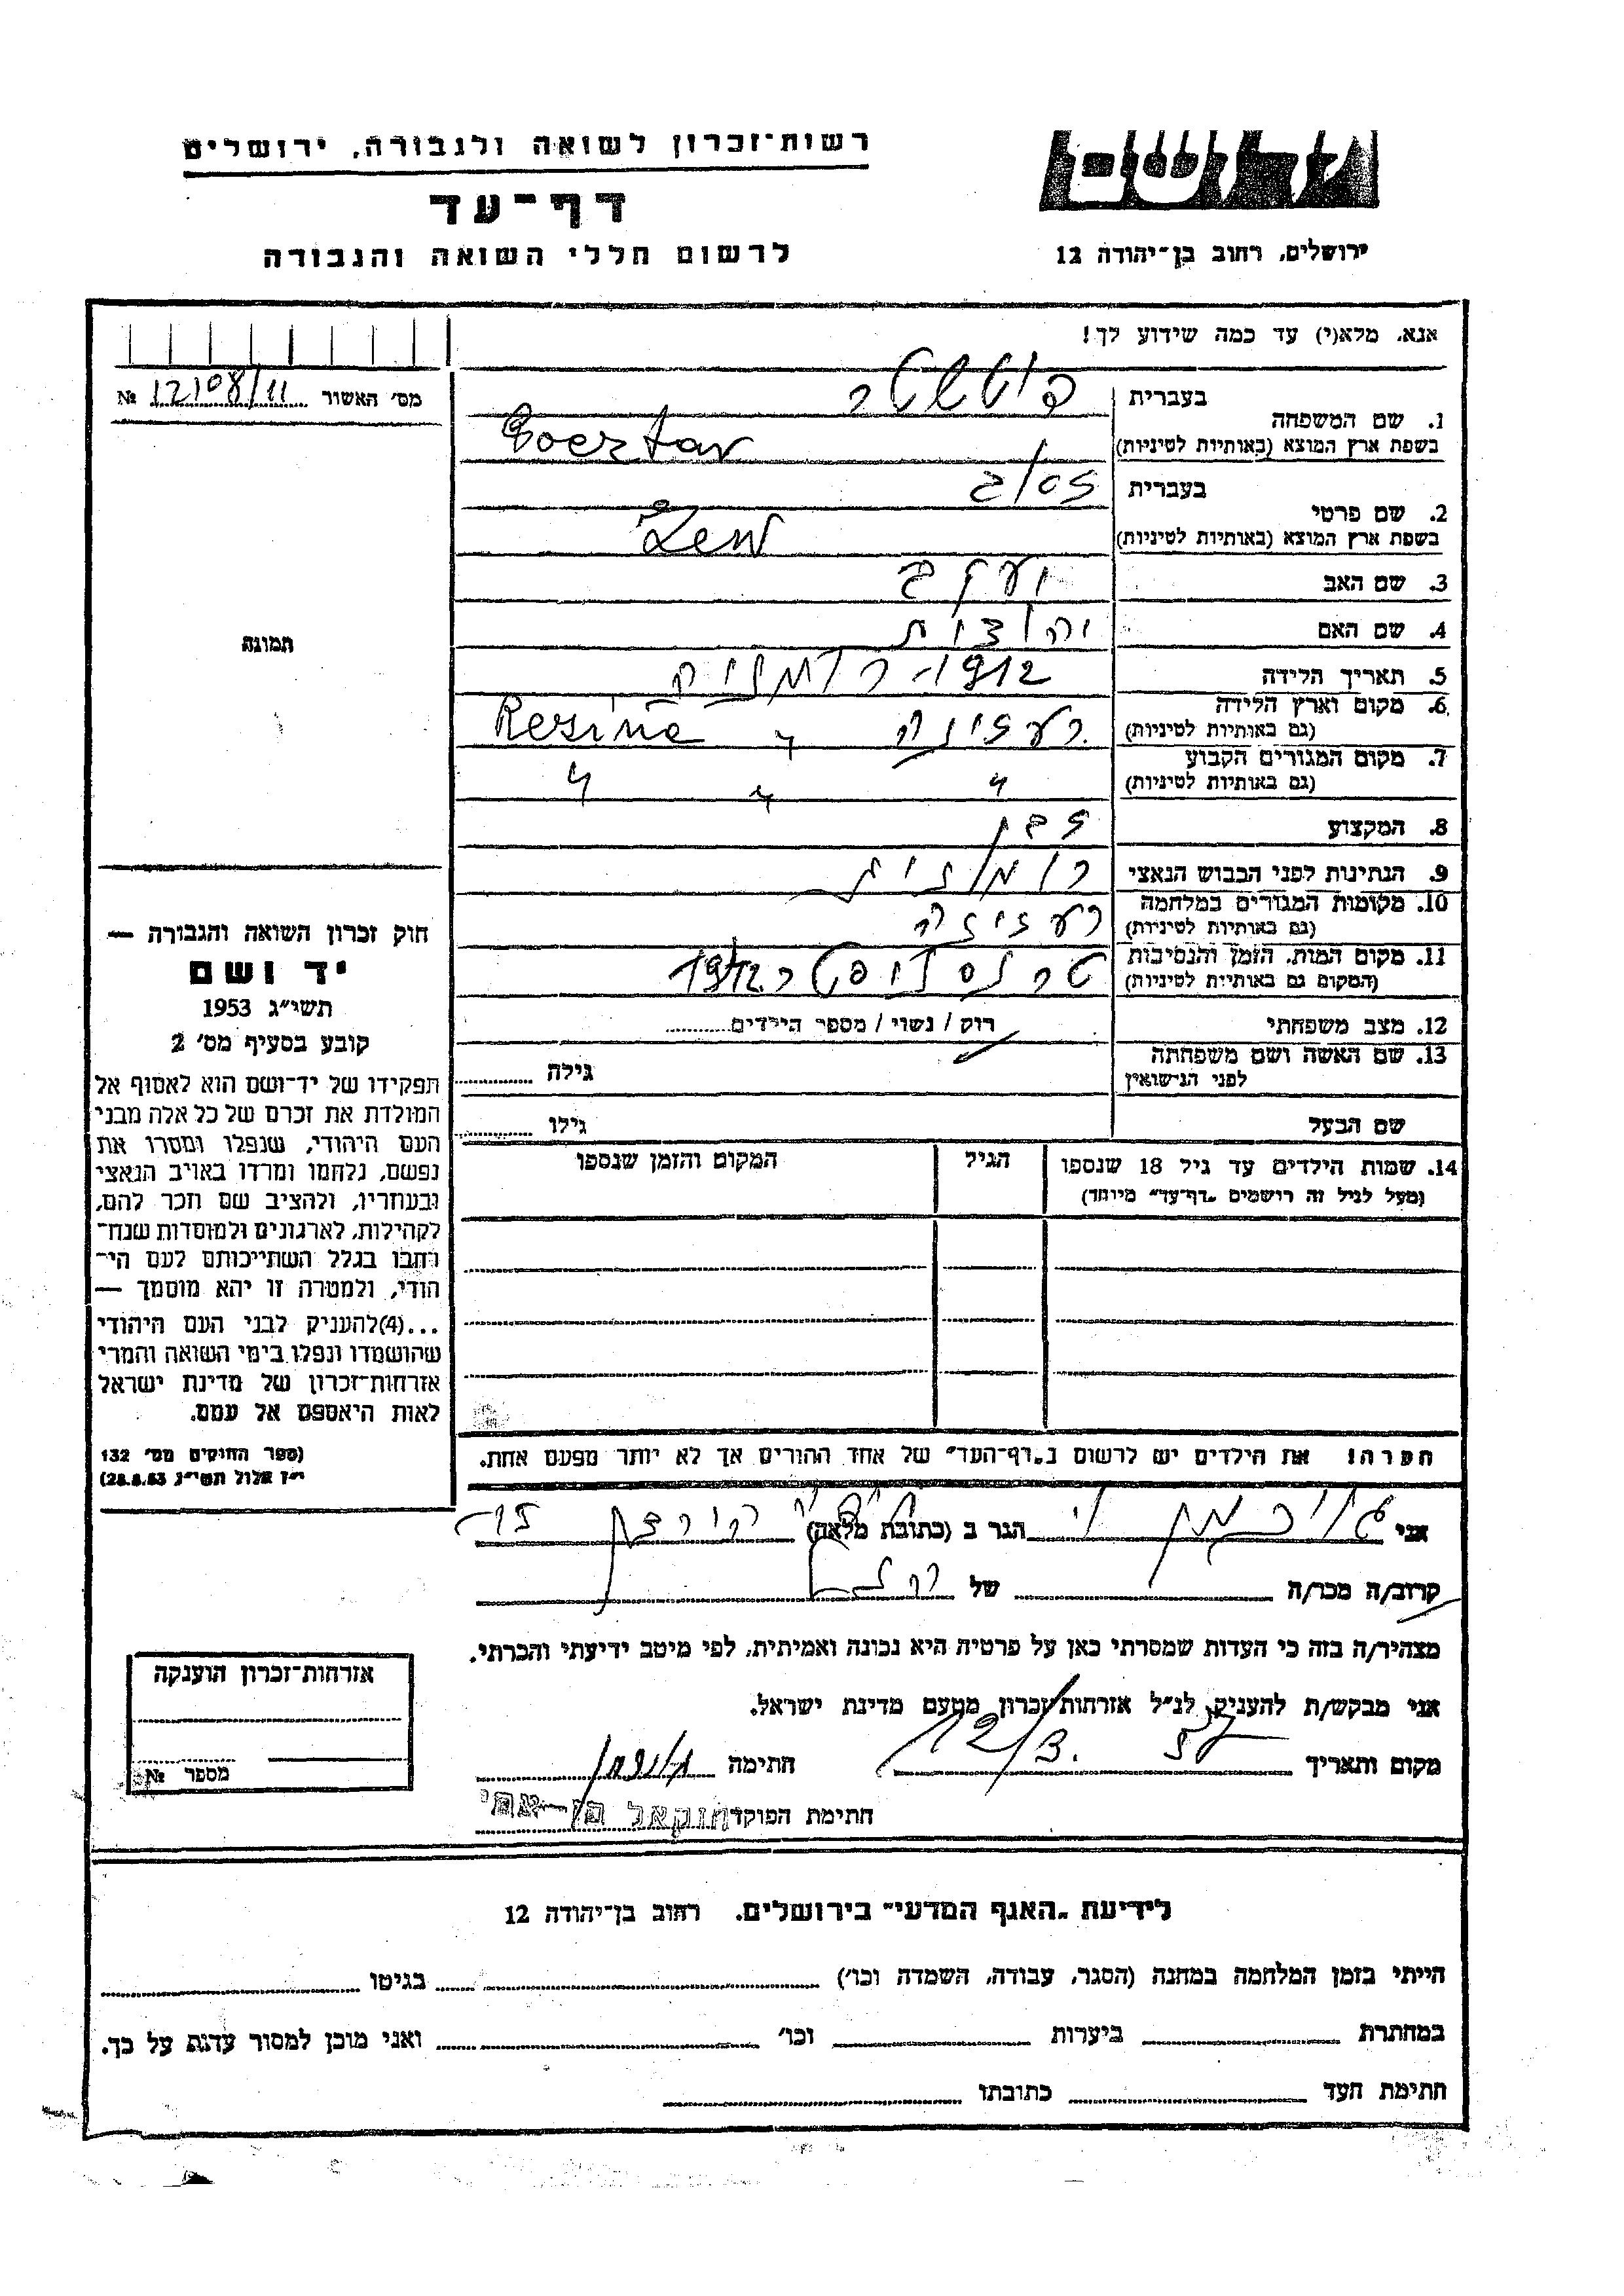 רשות־זכרון לשואה ולגבורה, ירושלים
דף־עד
לרשום חללי השואה והגבורה
ירושלים, רחוב בן־יהודה 12
אנא, מלא(י) עד כמה שידוע לך!
מס׳ האשור № 12108/11
1. שם המשפחה
בעברית
בשפת ארץ המוצא (באותיות לטיניות)
2. שם פרטי
בעברית זאב
בשפת ארץ המוצא (באותיות לטיניות)
3. שם האב יעקב
4. שם האם יהודית
5. תאריך הלידה 1912 רומניה
6. מקום וארץ הלידה רעזינה " Resina
(גם באותיות לטיניות)
7. מקום המגורים הקבוע " " "
(גם באותיות לטיניות)
8. המקצוע
9. הנתינות לפני הכבוש הנאצי רומנית
10. מקומות המגורים במלחמה רעזינה
(גם באותיות לטיניות)
11. מקום המות, הזמן והנסיבות 1942
(המקום גם באותיות לטיניות)
12. מצב משפחתי רוק / נשוי / מספר הילדים
13. שם האשה ושם משפחתה
לפני הנישואין
גילה
שם הבעל גילו
14. שמות הילדים עד גיל 18 שנספו הגיל המקום והזמן שנספו
(מעל לגיל זה רושמים „דף־עד” מיוחד)
הערה! את הילדים יש לרשום ב„דף־העד” של אחד ההורים אך לא יותר מפעם אחת.
תמונה
חוק זכרון השואה והגבורה —
יד ושם
תשי״ג 1953
קובע בסעיף מס׳ 2
תפקידו של יד־ושם הוא לאסוף אל
המולדת את זכרם של כל אלה מבני
העם היהודי, שנפלו ומסרו את
נפשם, נלחמו ומרדו באויב הנאצי
ובעוזריו, ולהציב שם וזכר להם,
לקהילות, לארגונים ולמוסדות שנח־
רבו בגלל השתייכותם לעם הי־
הודי, ולמטרה זו יהא מוסמך —
...(4)להעניק לבני העם היהודי
שהושמדו ונפלו בימי השואה והמרי
אזרחות־זכרון של מדינת ישראל
לאות היאספם אל עמם.
(ספר החוקים מס׳ 132
י״ז אלול תשי״ג 28.8.53)
אני הגר ב (כתובת מלאה)
קרוב/ה מכר/ה של
מצהיר/ה בזה כי העדות שמסרתי כאן על פרטיה היא נכונה ואמיתית, לפי מיטב ידיעתי והכרתי.
אני מבקש/ת להעניק לנ״ל אזרחות־זכרון מטעם מדינת ישראל.
מקום ותאריך 12/3. 57 חתימה
חתימת הפוקד
אזרחות־זכרון הוענקה
מספר №
לידיעת „האגף המדעי” בירושלים, רחוב בן־יהודה 12
הייתי בזמן המלחמה במחנה (הסגר, עבודה, השמדה וכו׳) בגיטו
במחתרת ביערות וכו׳ ואני מוכן למסור עדות על כך.
חתימת העד כתובתו